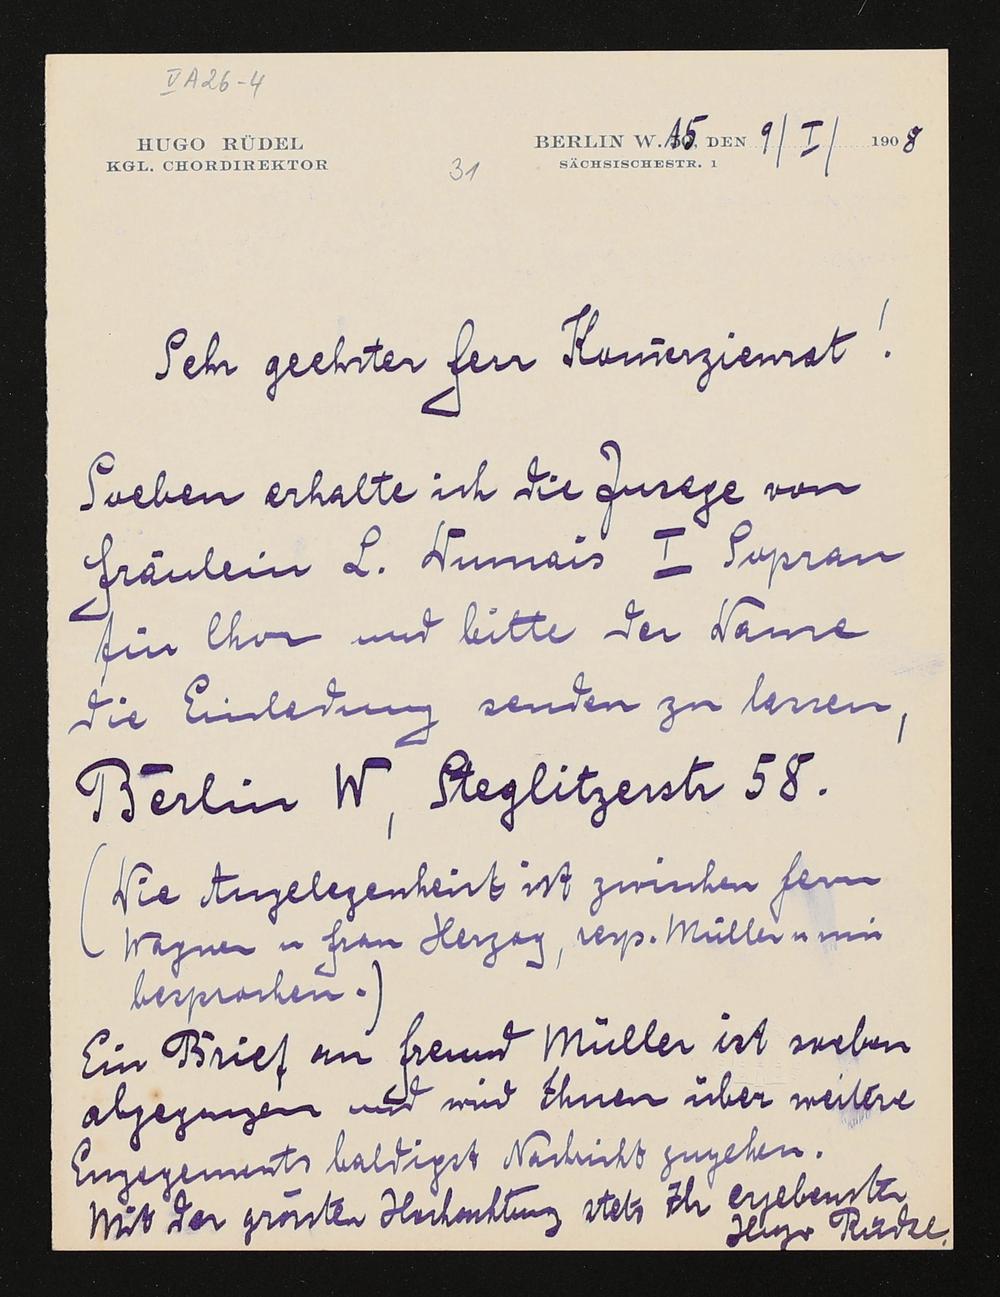 V A 26-4
HUGO RÜDEL
KGL. CHORDIREKTOR
31
BERLIN W. 15, DEN 9/I/ 1908
SÄCHSISCHESTR. 1
Sehr geehrter Herr Kom̄erzienrat!
Soeben erhalte ich die Zusage von
Fräulein L. Dumais I Sopran
für Chor und bitte der Dame
die Einladung senden zu lassen,
Berlin W, Steglitzerstr 58.
(Die Angelegenheit ist zwischen Herrn
Wagner u Frau Herzog, resp. Müller u mir
besprochen.)
Ein Brief an Freund Müller ist soeben
abgegangen und wird Ihnen über weitere
Engagements baldigst Nachricht zugehen.
Mit der grössten Hochachtung stets Ihr ergebenster
Hugo Rüdel.